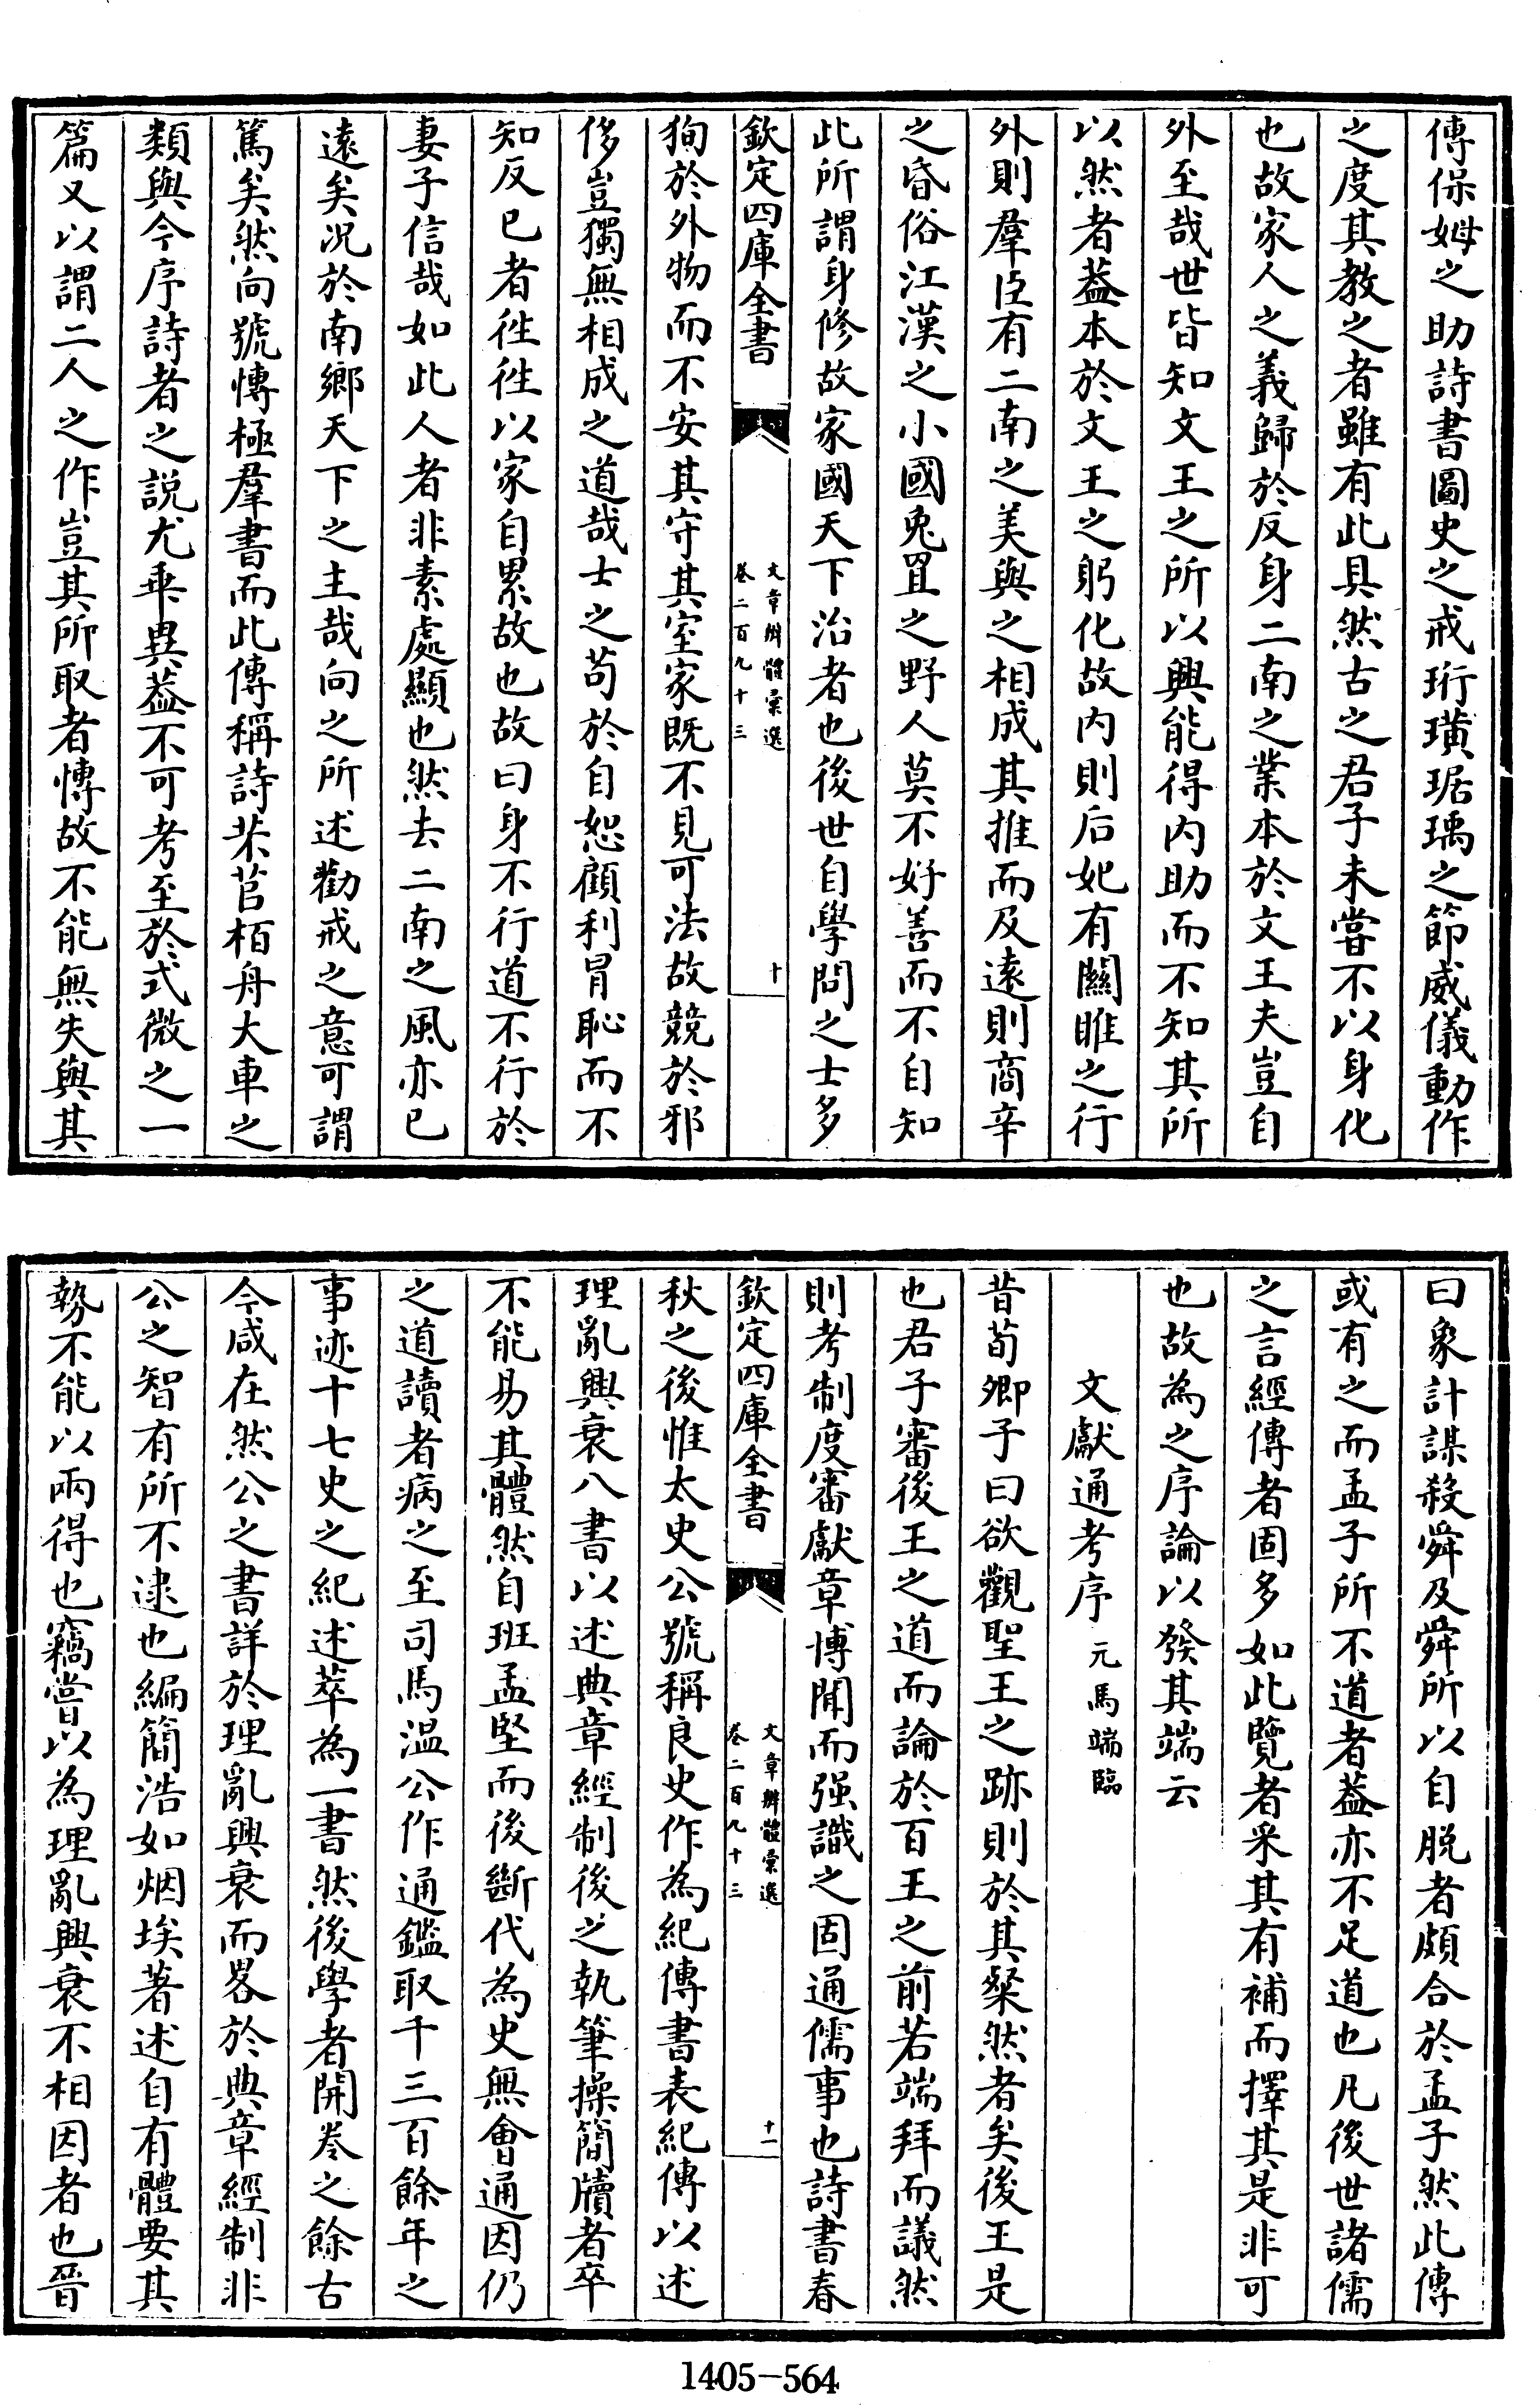 傅保姆之助詩書圖史之戒珩璜琚瑀之節威儀動作
之度其教之者雖有此具然古之君子未嘗不以身化
也故家人之義歸於反身二南之業本於文王夫豈自
外至哉世皆知文王之所以興能得内助而不知其所
以然者葢本於文王之躬化故内則后妃有關雎之行
外則羣臣有二南之美與之相成其推而及遠則商辛
之昏俗江漢之小國兔罝之野人莫不好善而不自知
此所謂身修故家國天下治者也後世自學問之士多
欽定四庫全書
文章辨體彙選
卷二百九十三
十
狥於外物而不安其守其室家既不見可法故競於邪
侈豈獨無相成之道哉士之茍於自恕顧利冒恥而不
知反已者徃徃以家自累故也故曰身不行道不行於
妻子信哉如此人者非素處顯也然去二南之風亦已
遠矣况於南鄉天下之主哉向之所述勸戒之意可謂
篤矣然向號慱極羣書而此傳稱詩芣苢栢舟大車之
類與今序詩者之説尤乖異葢不可考至於式微之一
篇又以謂二人之作豈其所取者慱故不能無失與其
曰象計謀殺舜及舜所以自脱者頗合於孟子然此傳
或有之而孟子所不道者葢亦不足道也凡後世諸儒
之言經傳者固多如此覽者采其有補而擇其是非可
也故為之序論以發其端云
文獻通考序 元馬端臨
昔荀卿子曰欲觀聖王之跡則於其粲然者矣後王是
也君子審後王之道而論於百王之前若端拜而議然
則考制度審獻章博聞而强識之固通儒事也詩書春
欽定四庫全書
文章辨體彙選
卷二百九十三
十一
秋之後惟太史公號稱良史作為紀傳書表紀傳以述
理亂興衰八書以述典章經制後之執筆操簡牘者卒
不能易其體然自班孟堅而後斷代為史無會通因仍
之道讀者病之至司馬温公作通鑑取千三百餘年之
事迹十七史之紀述萃為一書然後學者開卷之餘古
今咸在然公之書詳於理亂興衰而畧於典章經制非
公之智有所不逮也編簡浩如烟埃著述自有體要其
勢不能以兩得也竊嘗以為理亂興衰不相因者也晉
1405-564